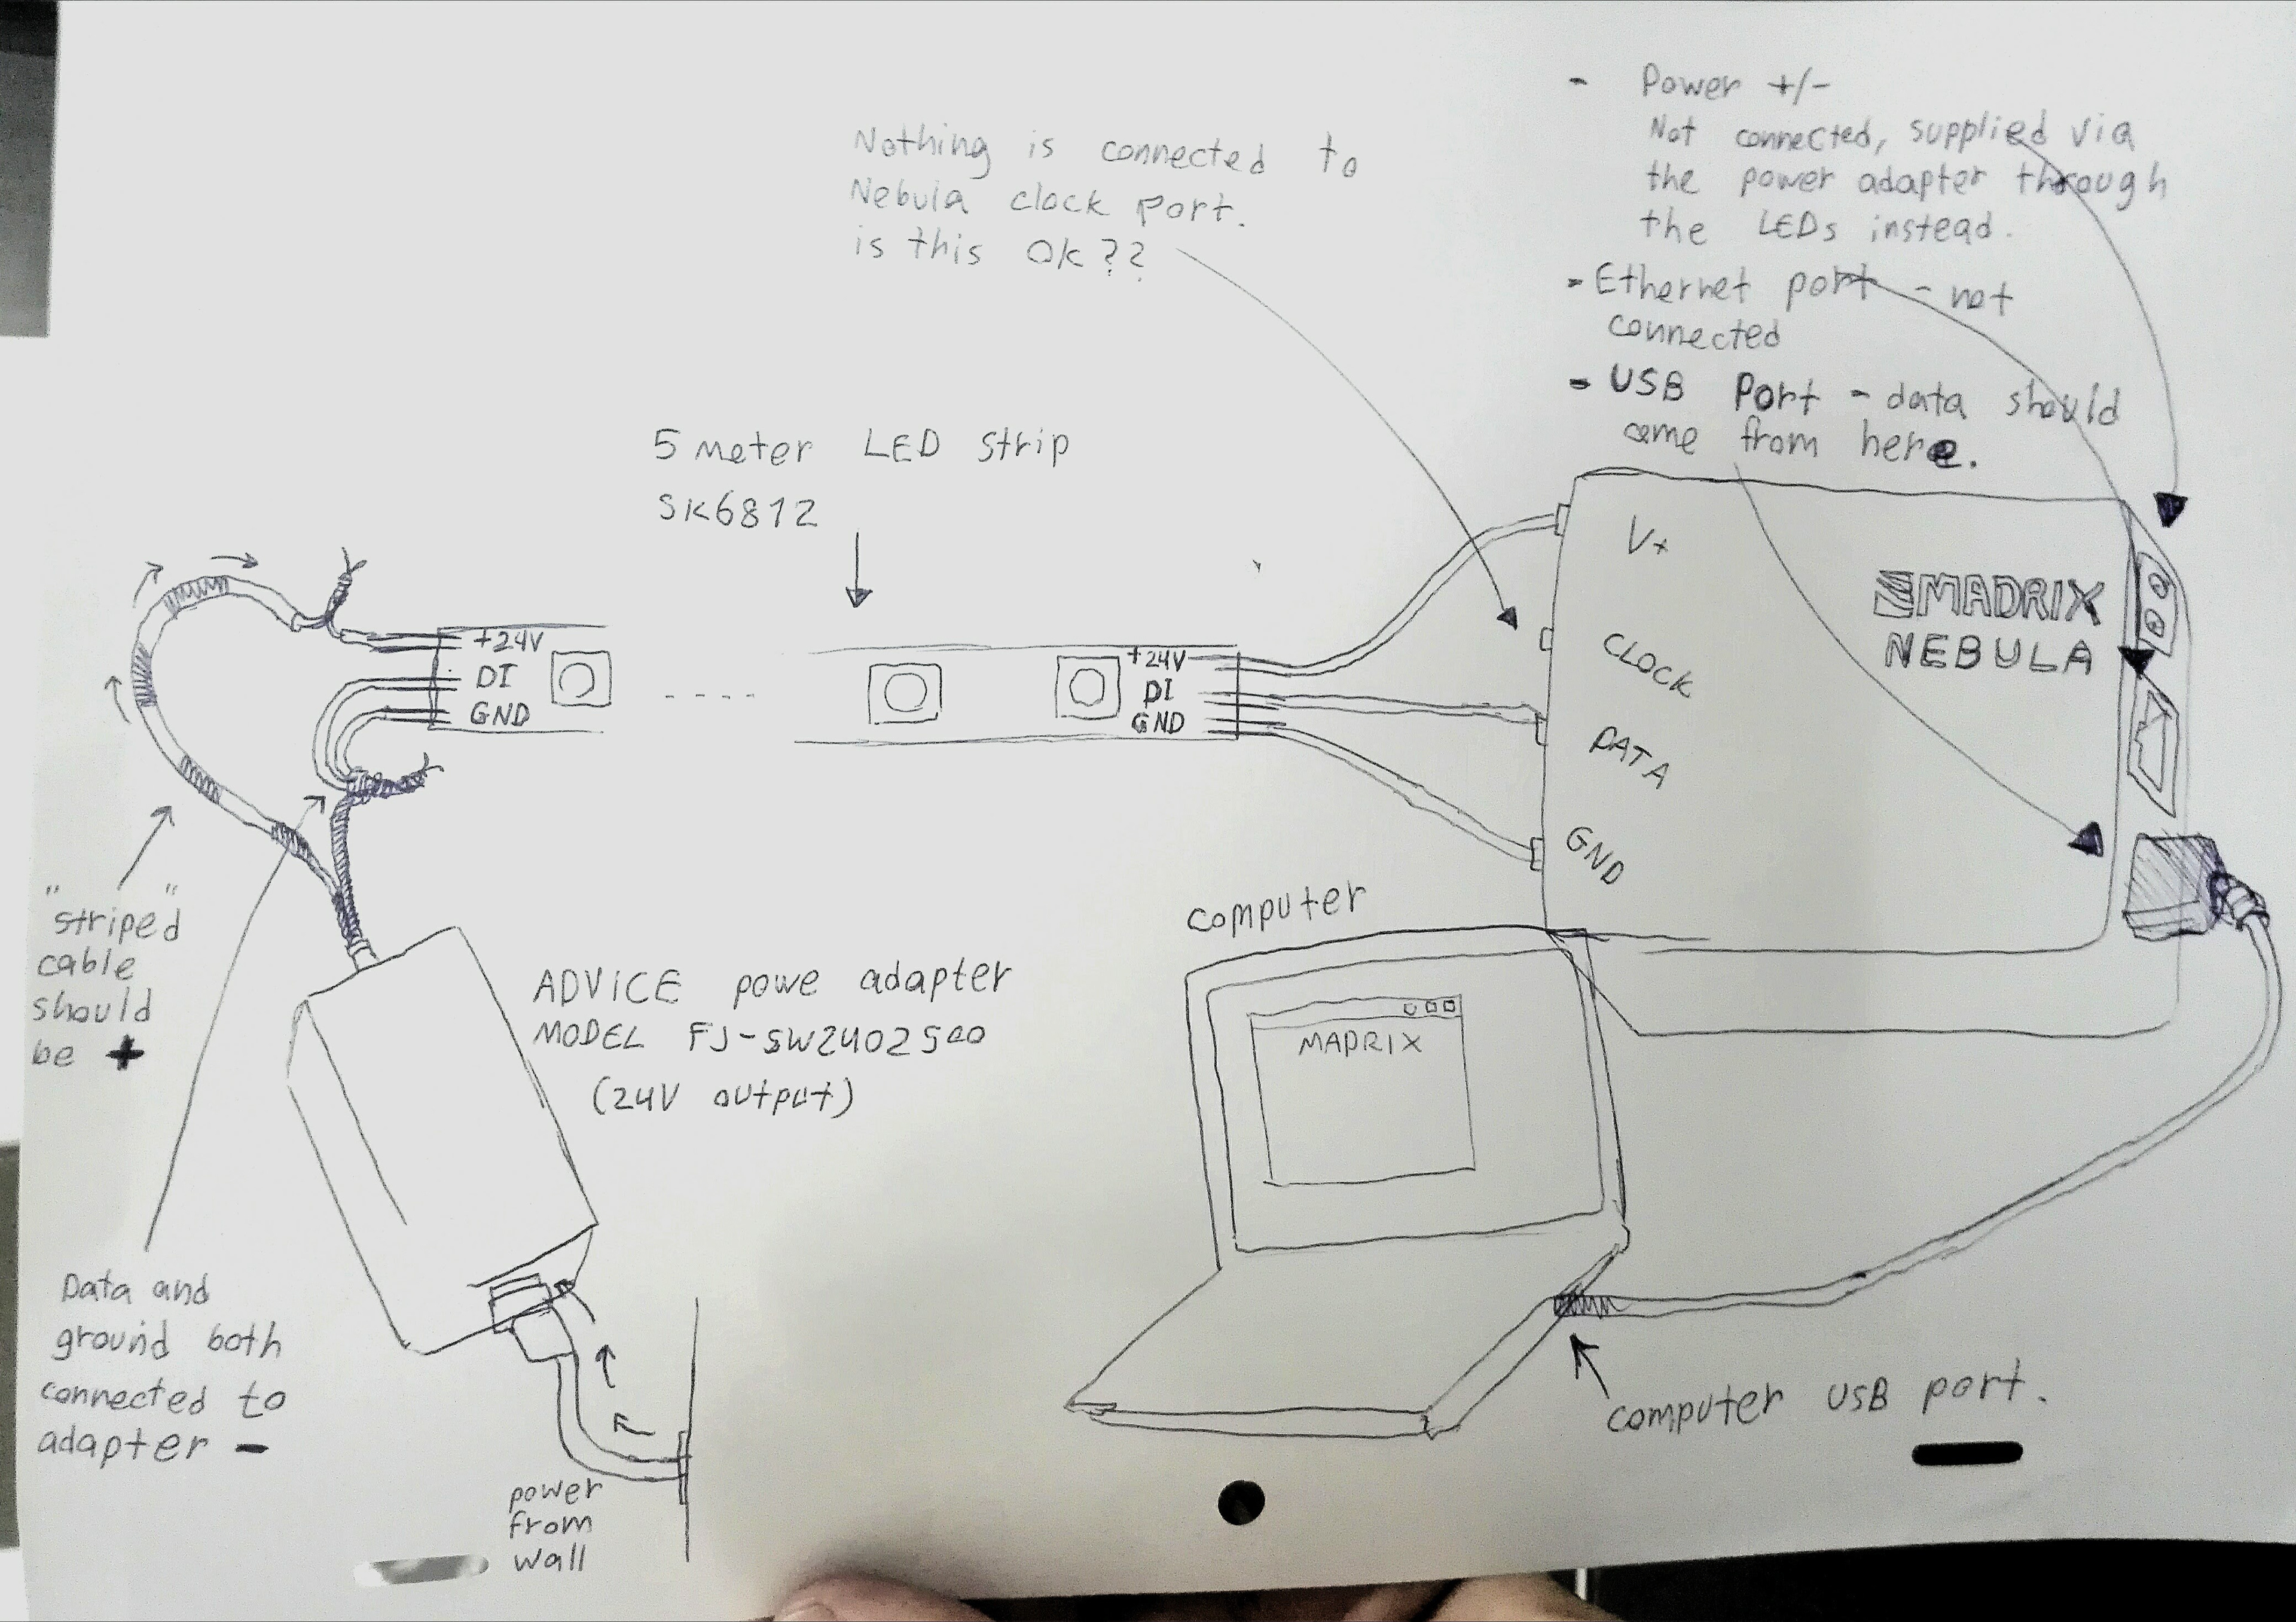 - Power +/-
Not connected, supplied via
the power adapter through
the LEDs instead.
- Ethernet port - not
connected
- USB Port - data should
come from here.
Nothing is connected to
Nebula clock port.
is this OK??
5 meter LED strip
SK6812
+24V
DI
GND
+24V
DI
GND
V+
CLOCK
DATA
GND
MADRIX
NEBULA
"striped"
cable
should
be +
Data and
ground both
connected to
adapter -
ADVICE powe adapter
MODEL FJ-SW2402500
(24V output)
power
from
wall
computer
MADRIX
computer USB port.